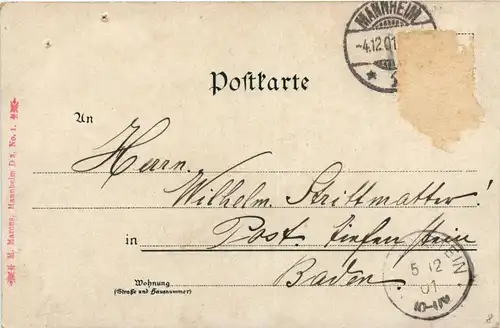 MANNHEIM
-4.12.01
Postkarte
An
Herrn.
Wilhelm Strittmatter!
in Post. Tiefenstein
Baden.
Wohnung
(Straße und Hausnummer)
5 12
01
M. Marcus, Mannheim D 3, No. 1.